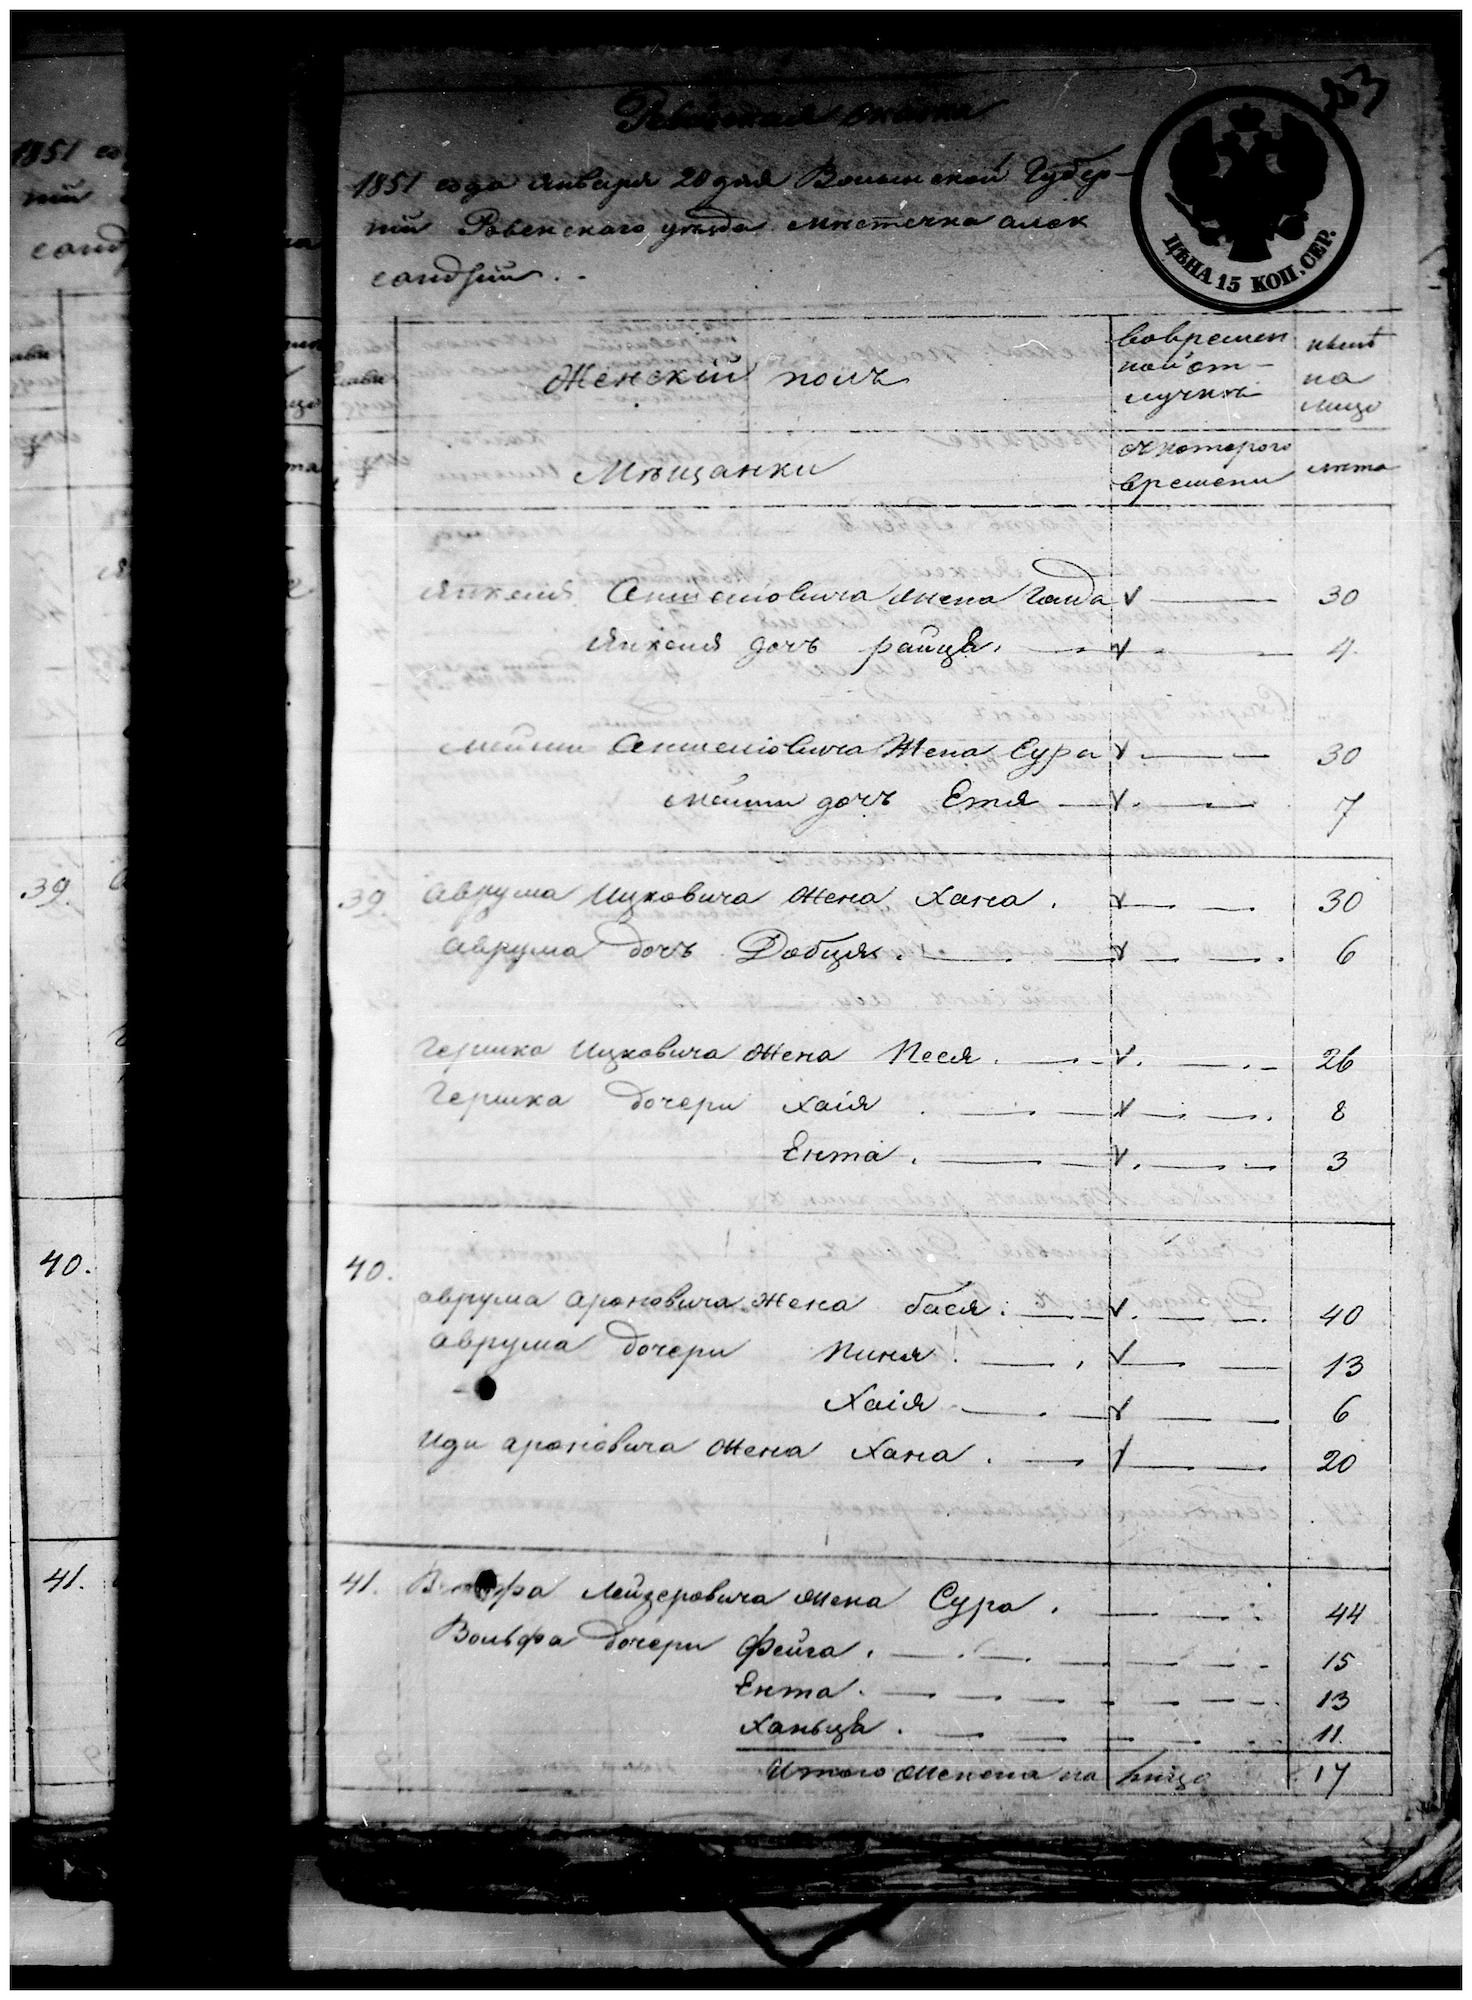 Ревизская сказка
253
1851 года Января 20 дня Волынской Губер-
нии Ровенского уезда местечка алек
сандрии.
ЦѢНА 15 КОП. СЕР.
Женскій полъ
вовремен
ной от-
лучкѣ
нынѣ
на
лицо
Мѣщанки
съ котораго
времени
лѣта
Янкеля жена Голда 30
Янкеля дочь райця 4
Жена Сура 30
дочъ Етя 7
39. Аврума Ицковича жена Хана. 30
Аврума дочъ Добця. 6
Гершка Ицковича жена Песя. 26
Гершка дочери Хаія. 8
Ента. 3
40.
Аврума Ароновича жена бася. 40
Аврума дочери Пиня. 13
Хаія 6
Иди Ароновича жена Хана. 20
41. Вольфа Лейзеровича жена Сура. 44
Вольфа дочери Фейга. 15
Ента. 13
Ханьця. 11
Итого женска на лицо 17
39.
40.
41.